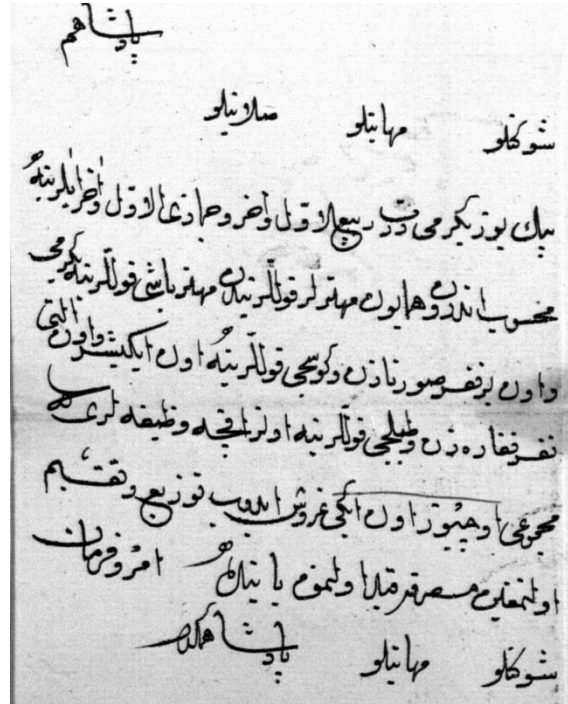 پادشاهم
شوكتلو مهابتلو صلابتلو
بيك يوز يكرمى درت ربيع الاول و اخر و جماذى الاول و اخر ايلرينه
محسوب اندرون همايون مهترلر قوللرندن مهتر باشى قوللرينه يكرمى
و اون بر نفر صورنازن و كوسجى قوللرينه اون ايكيشر و اون التى
نفر نقاره زن و طبلجى قوللرينه اونر اقچه وظيفه لرى كه
مجموعى اوچيوز اون ايكى غروش ايدوب توزيع و تقسيم
اولنمغين مصر قيد اولنمق بابنده امر و فرمان
شوكتلو مهابتلو پادشاهمكدر